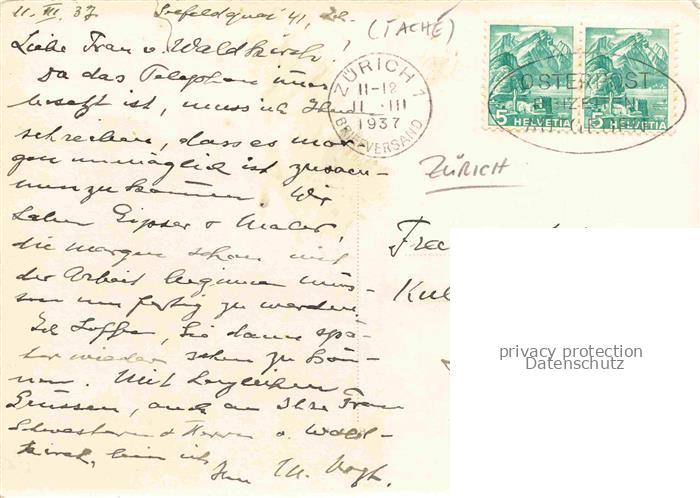 11. III. 37. Seefeldquai 41, Zch.
(TACHÉ)
Liebe Frau v. Waldkirch!
Da das Telephon immer
besetzt ist, muss ich Ihnen
schreiben, dass es mor-
gen unmöglich ist zusam-
menzukommen. Wir
haben Gipser & Maler,
die morgen schon mit
der Arbeit beginnen müs-
sen um fertig zu werden.
Ich hoffe, Sie dann spä-
ter wieder sehen zu kön-
nen. Mit herzlichen
Grüssen, auch an Ihre Frau
Schwester & Herrn v. Wald-
kirch, bin ich
Ihre M. Vogt.
ZÜRICH 1
11-12
11. III
1937
BRIEFVERSAND
5 HELVETIA
5 HELVETIA
OSTERPOST
ZÜRICH
privacy protection
Datenschutz